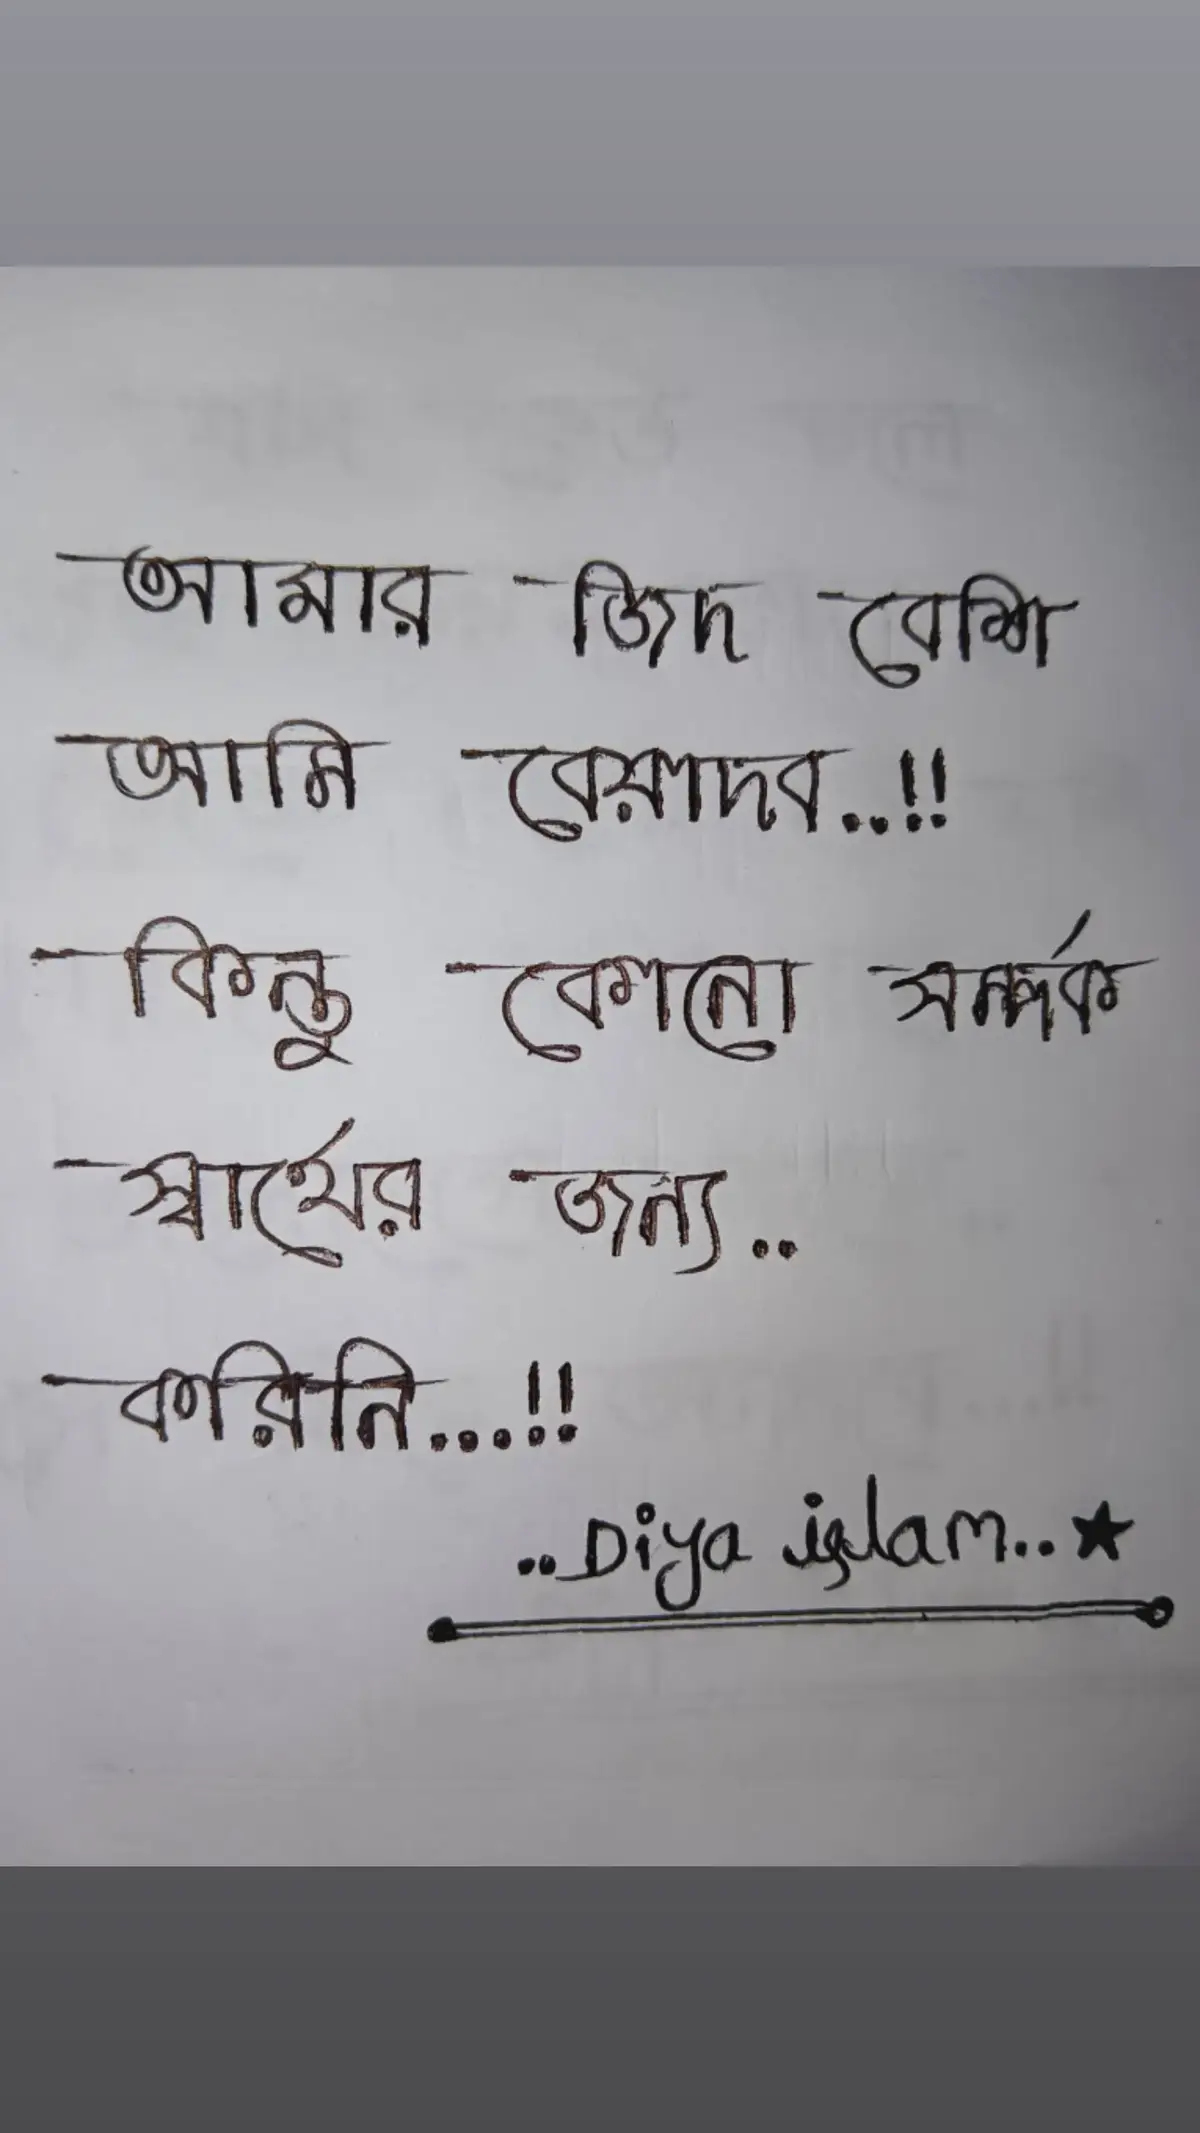 আমার জিদ বেশি
আমি বেয়াদব..!!
কিন্তু কোনো সম্পর্ক
স্বার্থের জন্য..
করিনি...!!
..Diya islam..★